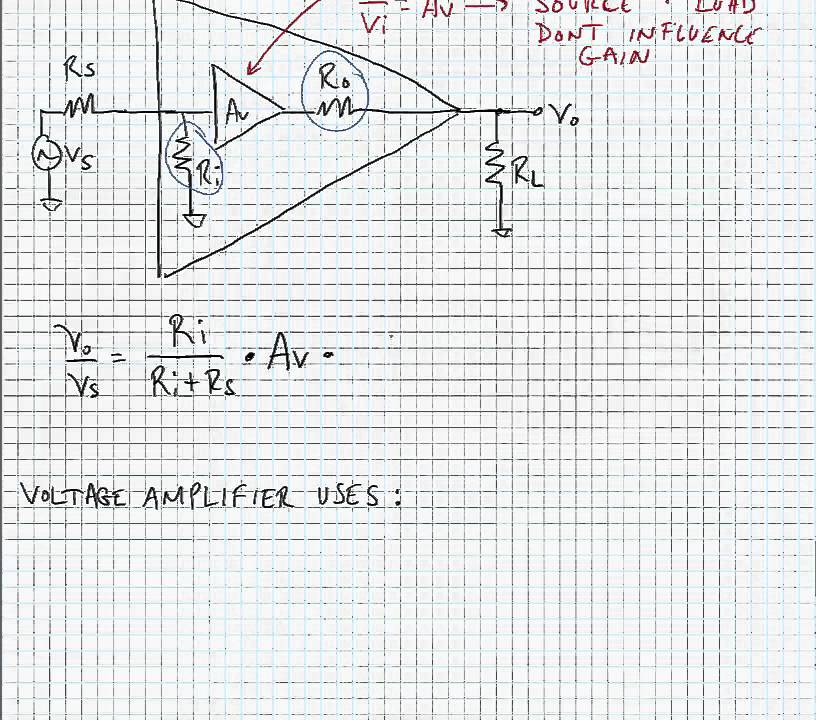 Vi = AV → SOURCE + LOAD
DONT INFLUENCE
GAIN
RS
Ro
AV
Vo
VS
Ri
RL
Vo/VS = Ri/Ri+RS • AV •
VOLTAGE AMPLIFIER USES: